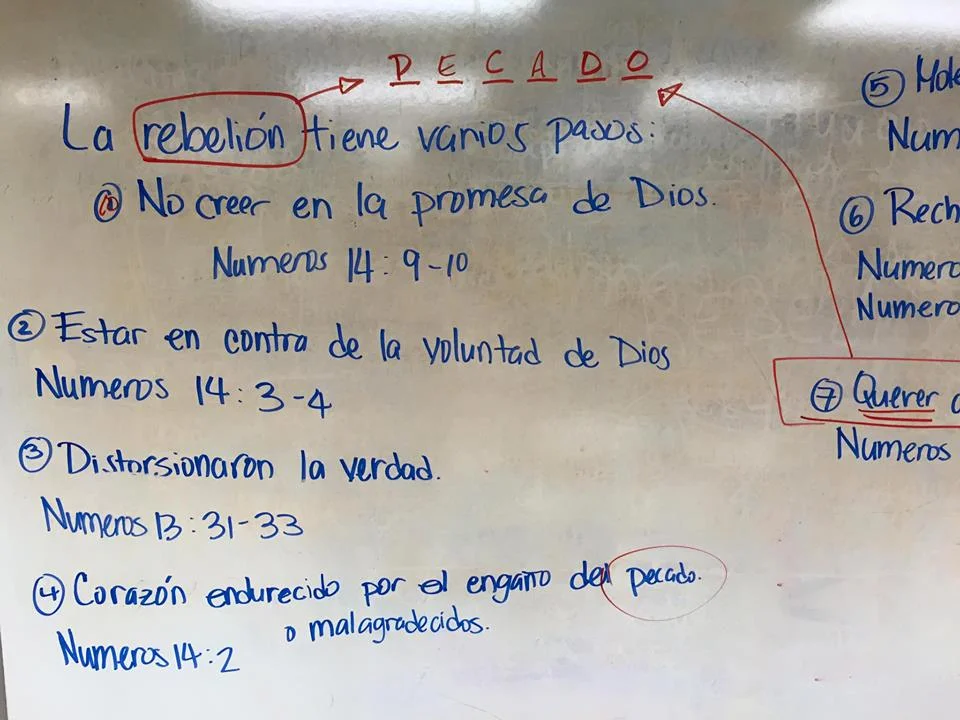 PECADO
La rebelión tiene varios pasos:
① No creer en la promesa de Dios.
Numeros 14:9-10
② Estar en contra de la voluntad de Dios
Numeros 14:3-4
③ Distorsionaron la verdad.
Numeros 13:31-33
④ Corazón endurecido por el engaño del pecado.
o malagradecidos.
Numeros 14:2
⑤
⑥
⑦ Querer
Numeros